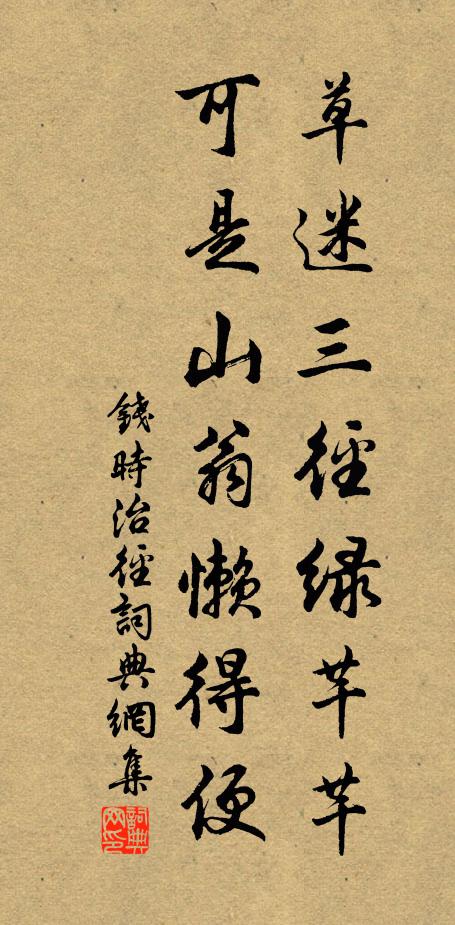 草迷三徑緑芊芊
可是山翁懶得便
錢時治徑詞典網集
詞典网印